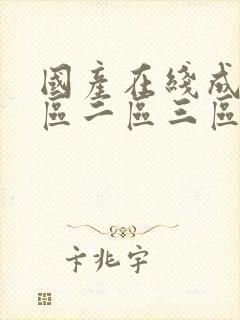 國產在綫成
區二區三區
卞兆宇